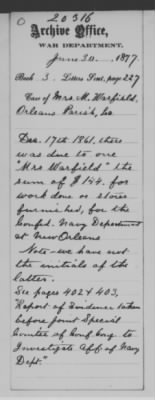 20316
Archive Office,
WAR DEPARTMENT.
June 30, 1877
Book 3. Letters Sent, page 227
Case of Mrs. M. Warfield,
Orleans Parish, La
Dec. 17th 1861, there
was due to one
"Mrs Warfield" the
sum of $144. for
work done or stores
furnished, for the
Confed. Navy Department
at New Orleans
Note - we have not
the initials of the
latter.
See pages 402 & 403,
"Report of Evidence taken
before Joint Special
Comtee of Conf. Cong. to
Investigate Aff. of Navy
Dept."